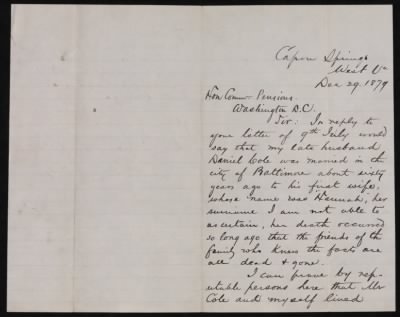 Capon Springs
West Va
Dec 29. 1879
Hon Commr Pensions.
Washington D.C.
Sir: In reply to
your letter of 9th July would
say that my late husband
Daniel Cole was married in the
city of Baltimore about sixty
years ago to his first wife,
whose name was "Hannah", her
surname I am not able to
ascertain, her death occurred
so long ago that the friends of the
family who knew the facts are
all dead & gone.
I can prove by rep-
utable persons here that Mr
Cole and myself lived